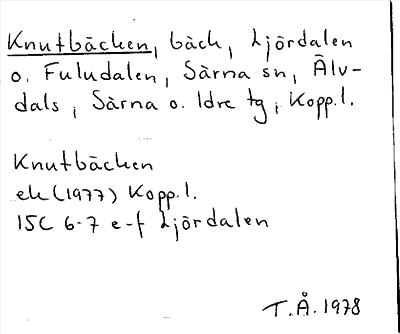 Knutbäcken, bäck, Ljördalen
o. Fuludalen, Särna sn, Älv-
dals, Särna o. Idre tg, Kopp. l.
Knutbäcken
ek (1977) Kopp. l.
15C 6-7 e-f Ljördalen
T.Å. 1978